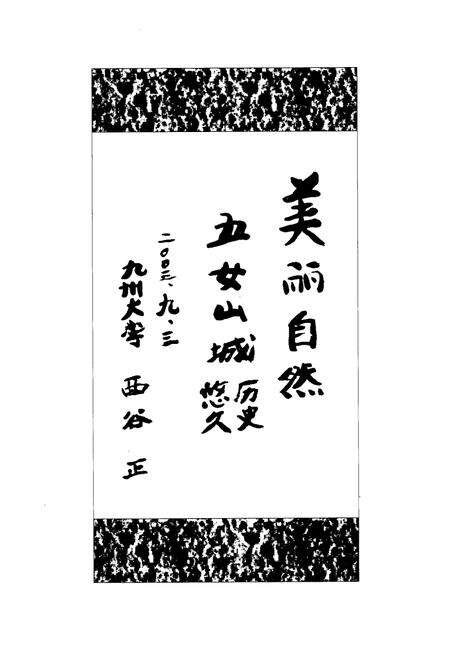 美丽自然
五女山城
历史
悠久
二〇〇三、九、三
九州大学 西谷 正